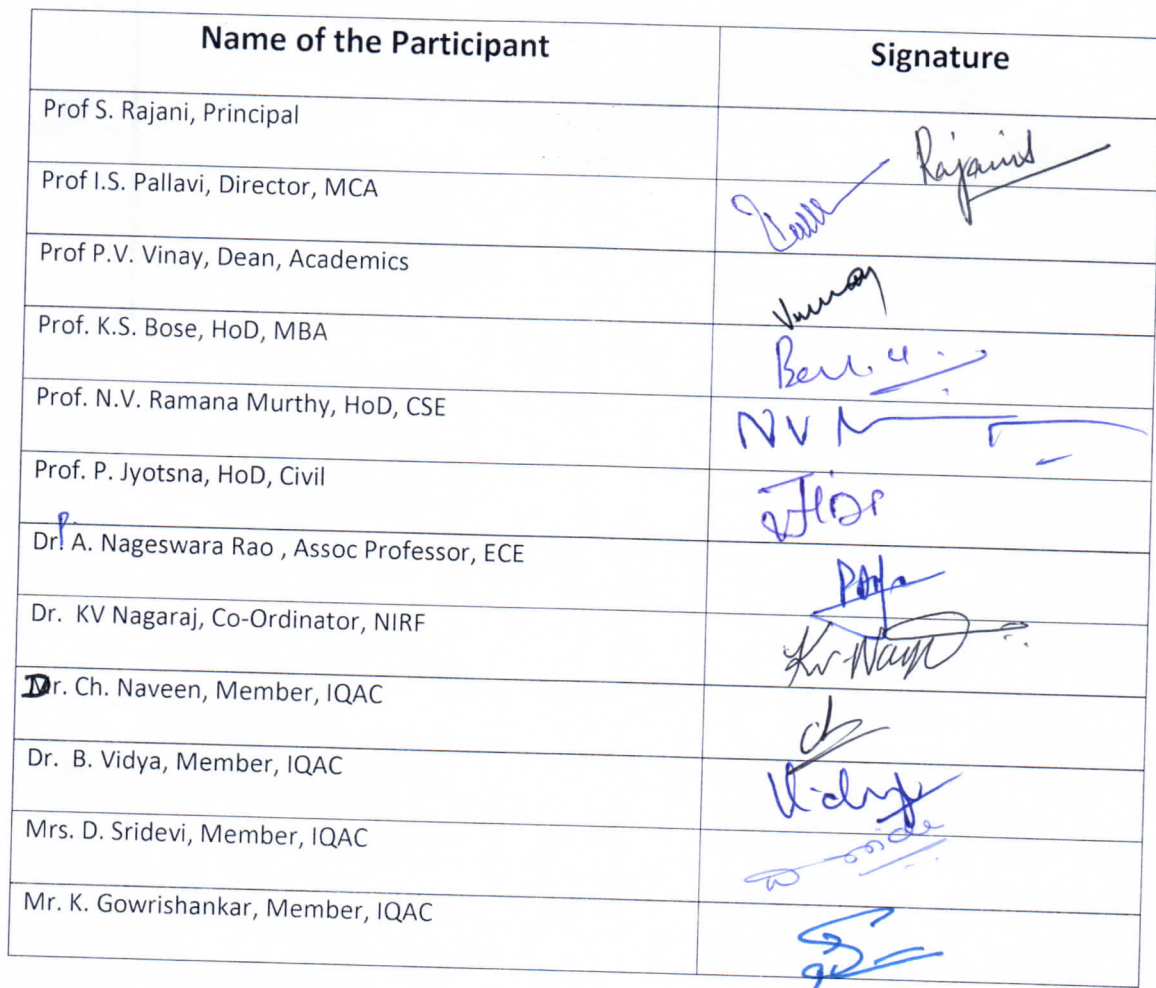 Name of the Participant Signature
Prof S. Rajani, Principal Rajani
Prof I.S. Pallavi, Director, MCA
Prof P.V. Vinay, Dean, Academics Vinay
Prof. K.S. Bose, HoD, MBA
Prof. N.V. Ramana Murthy, HoD, CSE NV
Prof. P. Jyotsna, HoD, Civil
Dr. P. A. Nageswara Rao , Assoc Professor, ECE
Dr. KV Nagaraj, Co-Ordinator, NIRF
Dr. Ch. Naveen, Member, IQAC
Dr. B. Vidya, Member, IQAC Vidya
Mrs. D. Sridevi, Member, IQAC
Mr. K. Gowrishankar, Member, IQAC